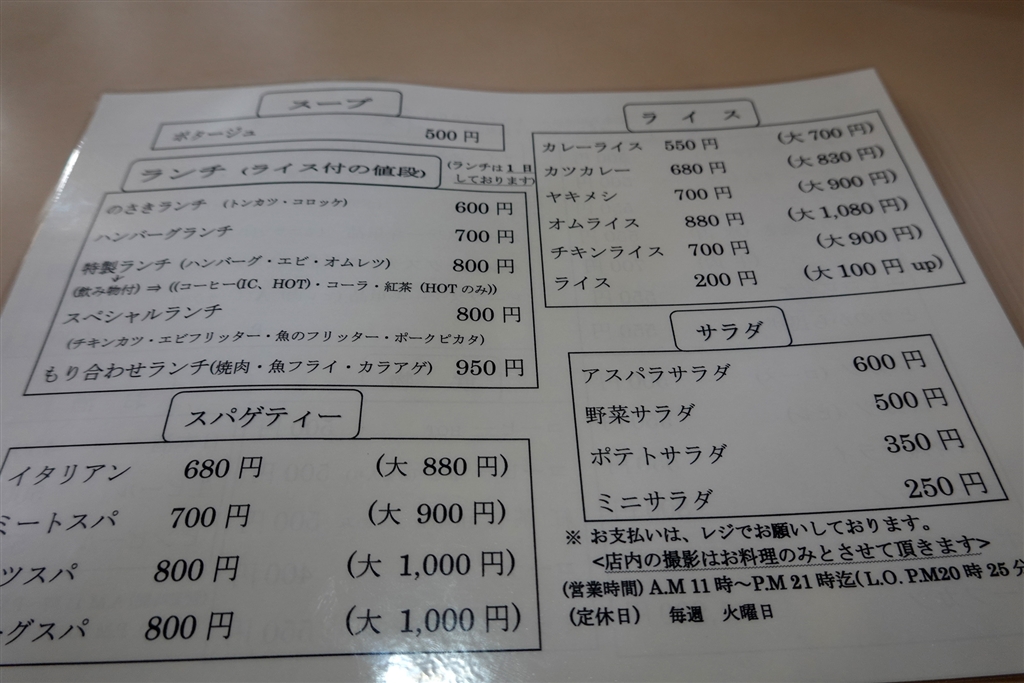 スープ
ポタージュ 500円
ランチ (ライス付の値段)
(ランチは1日
しております)
のさきランチ (トンカツ・コロッケ) 600円
ハンバーグランチ 700円
特製ランチ (ハンバーグ・エビ・オムレツ) 800円
(飲み物付) ⇒ ((コーヒー(IC、HOT)・コーラ・紅茶 (HOTのみ))
スペシャルランチ 800円
(チキンカツ・エビフリッター・魚のフリッター・ポークピカタ)
もり合わせランチ(焼肉・魚フライ・カラアゲ) 950円
スパゲティー
イタリアン 680円 (大 880円)
ミートスパ 700円 (大 900円)
ツスパ 800円 (大 1,000円)
グスパ 800円 (大 1,000円)
ライス
カレーライス 550円 (大 700円)
カツカレー 680円 (大 830円)
ヤキメシ 700円 (大 900円)
オムライス 880円 (大 1,080円)
チキンライス 700円 (大 900円)
ライス 200円 (大 100円 up)
サラダ
アスパラサラダ 600円
野菜サラダ 500円
ポテトサラダ 350円
ミニサラダ 250円
※ お支払いは、レジでお願いしております。
<店内の撮影はお料理のみとさせて頂きます>
(営業時間) A.M 11時～P.M 21時迄(L.O. P.M20時25分
(定休日) 毎週 火曜日